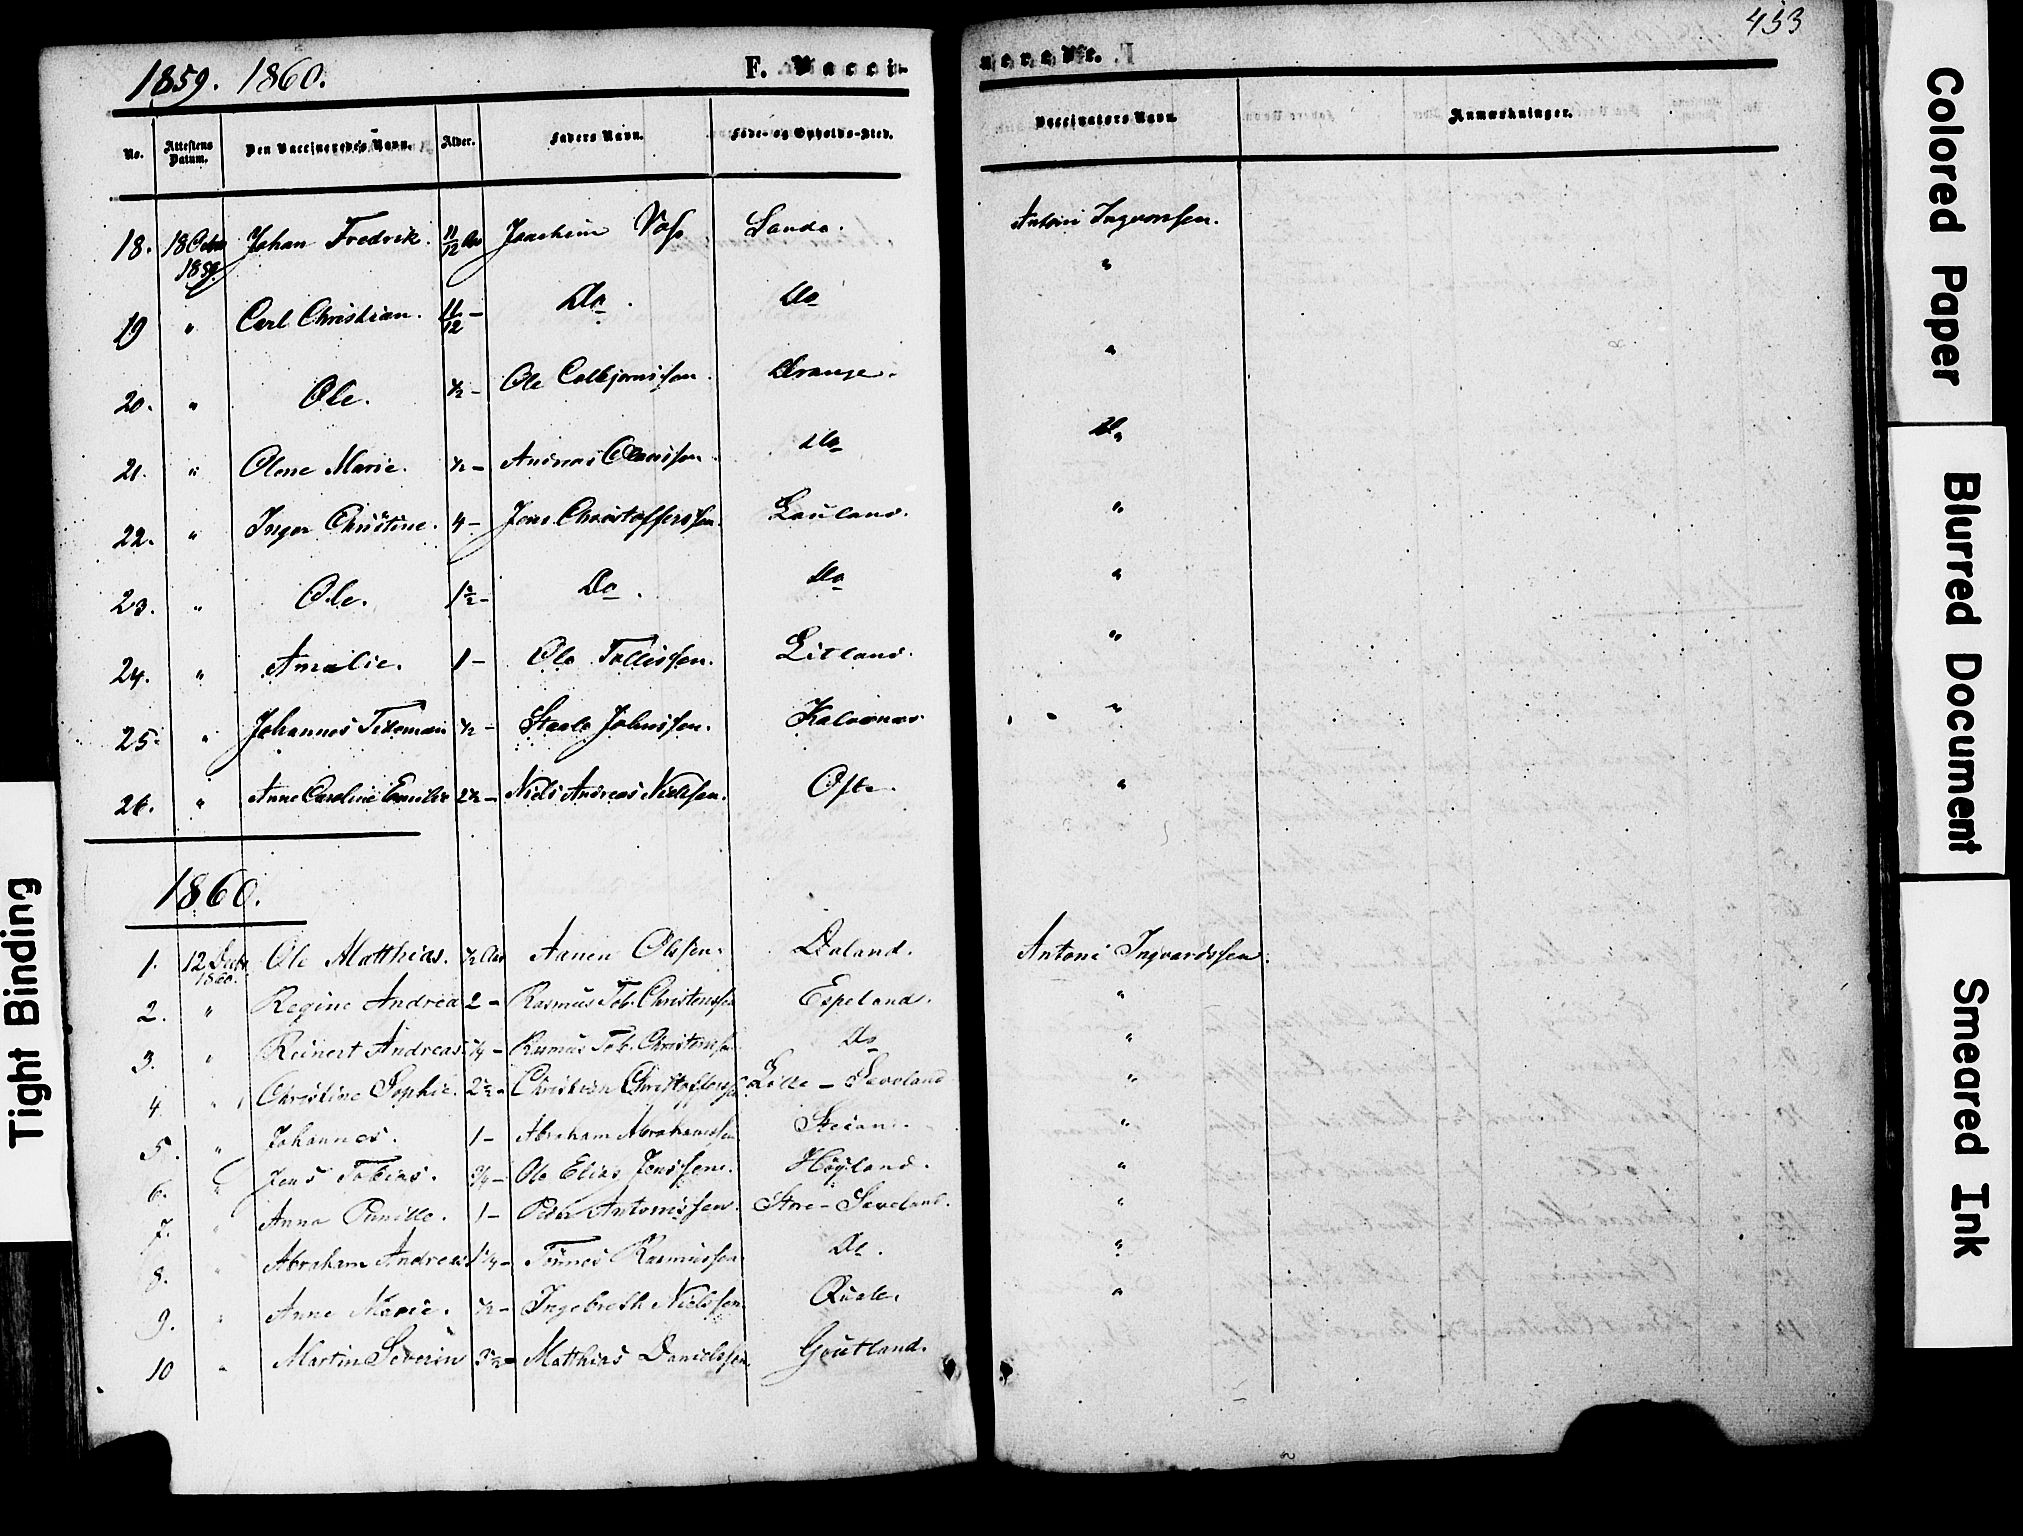 1859. 1860. F. Vacci-
nerede. 433
No. Attestens Datum. Den Vaccineredes Navn. Alder. Faders Navn. Føde- og Opholds-Sted. Vaccinateurs Navn. Anmærkninger.
18. 18 Octbr 1859. Johan Fredrik. 11/12 Aar Joachim Vos Sande. Antoni Ingvorssen.
19 " Carl Christian. 11/12 - Do. Do "
20. " Ole. 1/2 - Ole Colbjørnssen. Drange. "
21. " Olene Marie. 1/2 - Andreas Olaussen. Do Do
22. " Inger Christine. 4 - Jens Christofferssen. Lauland. "
23. " Ole. 1 1/2 - Do. Do "
24. " Amalie. 1 - Ole Tollissen. Litland. "
25. " Johannes Tideman 1/2 - Staale Johnssen. Kalvenes "
26. " Anne Caroline Emilie 2 1/2 - Niels Andreas Nielssen. Ofte. "
1860.
1. 12 Decbr 1860. Ole Matthias. 1/2 Aar Aanen Olssen. Daland. Antoni Ingvardssen.
2. " Regine Andrea 2 - Rasmus Tob. Christenssen Espeland. "
3. " Reinert Andreas 1/4 - Rasmus Tob. Christenssen Do "
4. " Christine Sophie. 2 1/2 - Christian Christofferssen Lille - Seveland "
5. " Johannes. 1 - Abraham Abrahamssen "
6. " Jens Tobias. 3/4 - Ole Elias Jenssen. Høyland. "
7. " Anna Pernille. 1 - Peder Antonissen. Store - Seveland. "
8. " Abraham Andreas 1 1/4 - Tønnes Rasmussen Do. "
9. " Anne Marie. 1/2 - Ingebreth Nielssen. Qvale. "
10 " Martin Severin 3 1/2 - Matthias Danielssen. Goutland.
Tight Binding
Colored Paper
Blurred Document
Smeared Ink